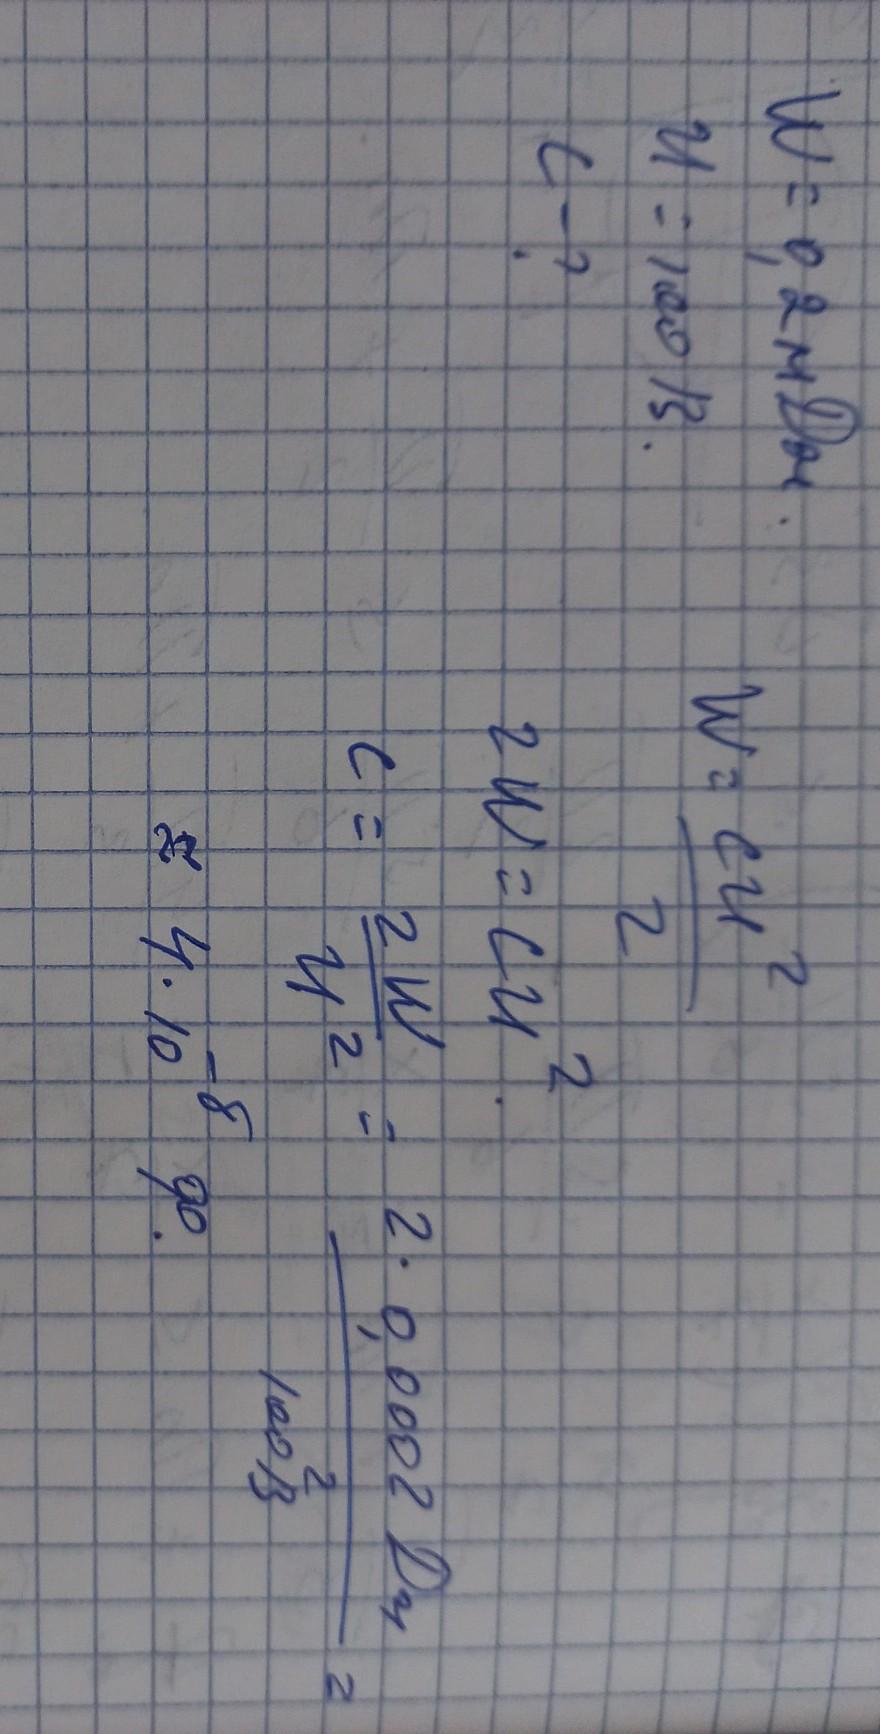 W = 0,2 мДж.
U = 100 В.
C - ?
W = CU²
2
2W = CU².
C = 2W = 2 · 0,0002 Дж =
U² 100² В
= 4 · 10⁻⁸ ф.